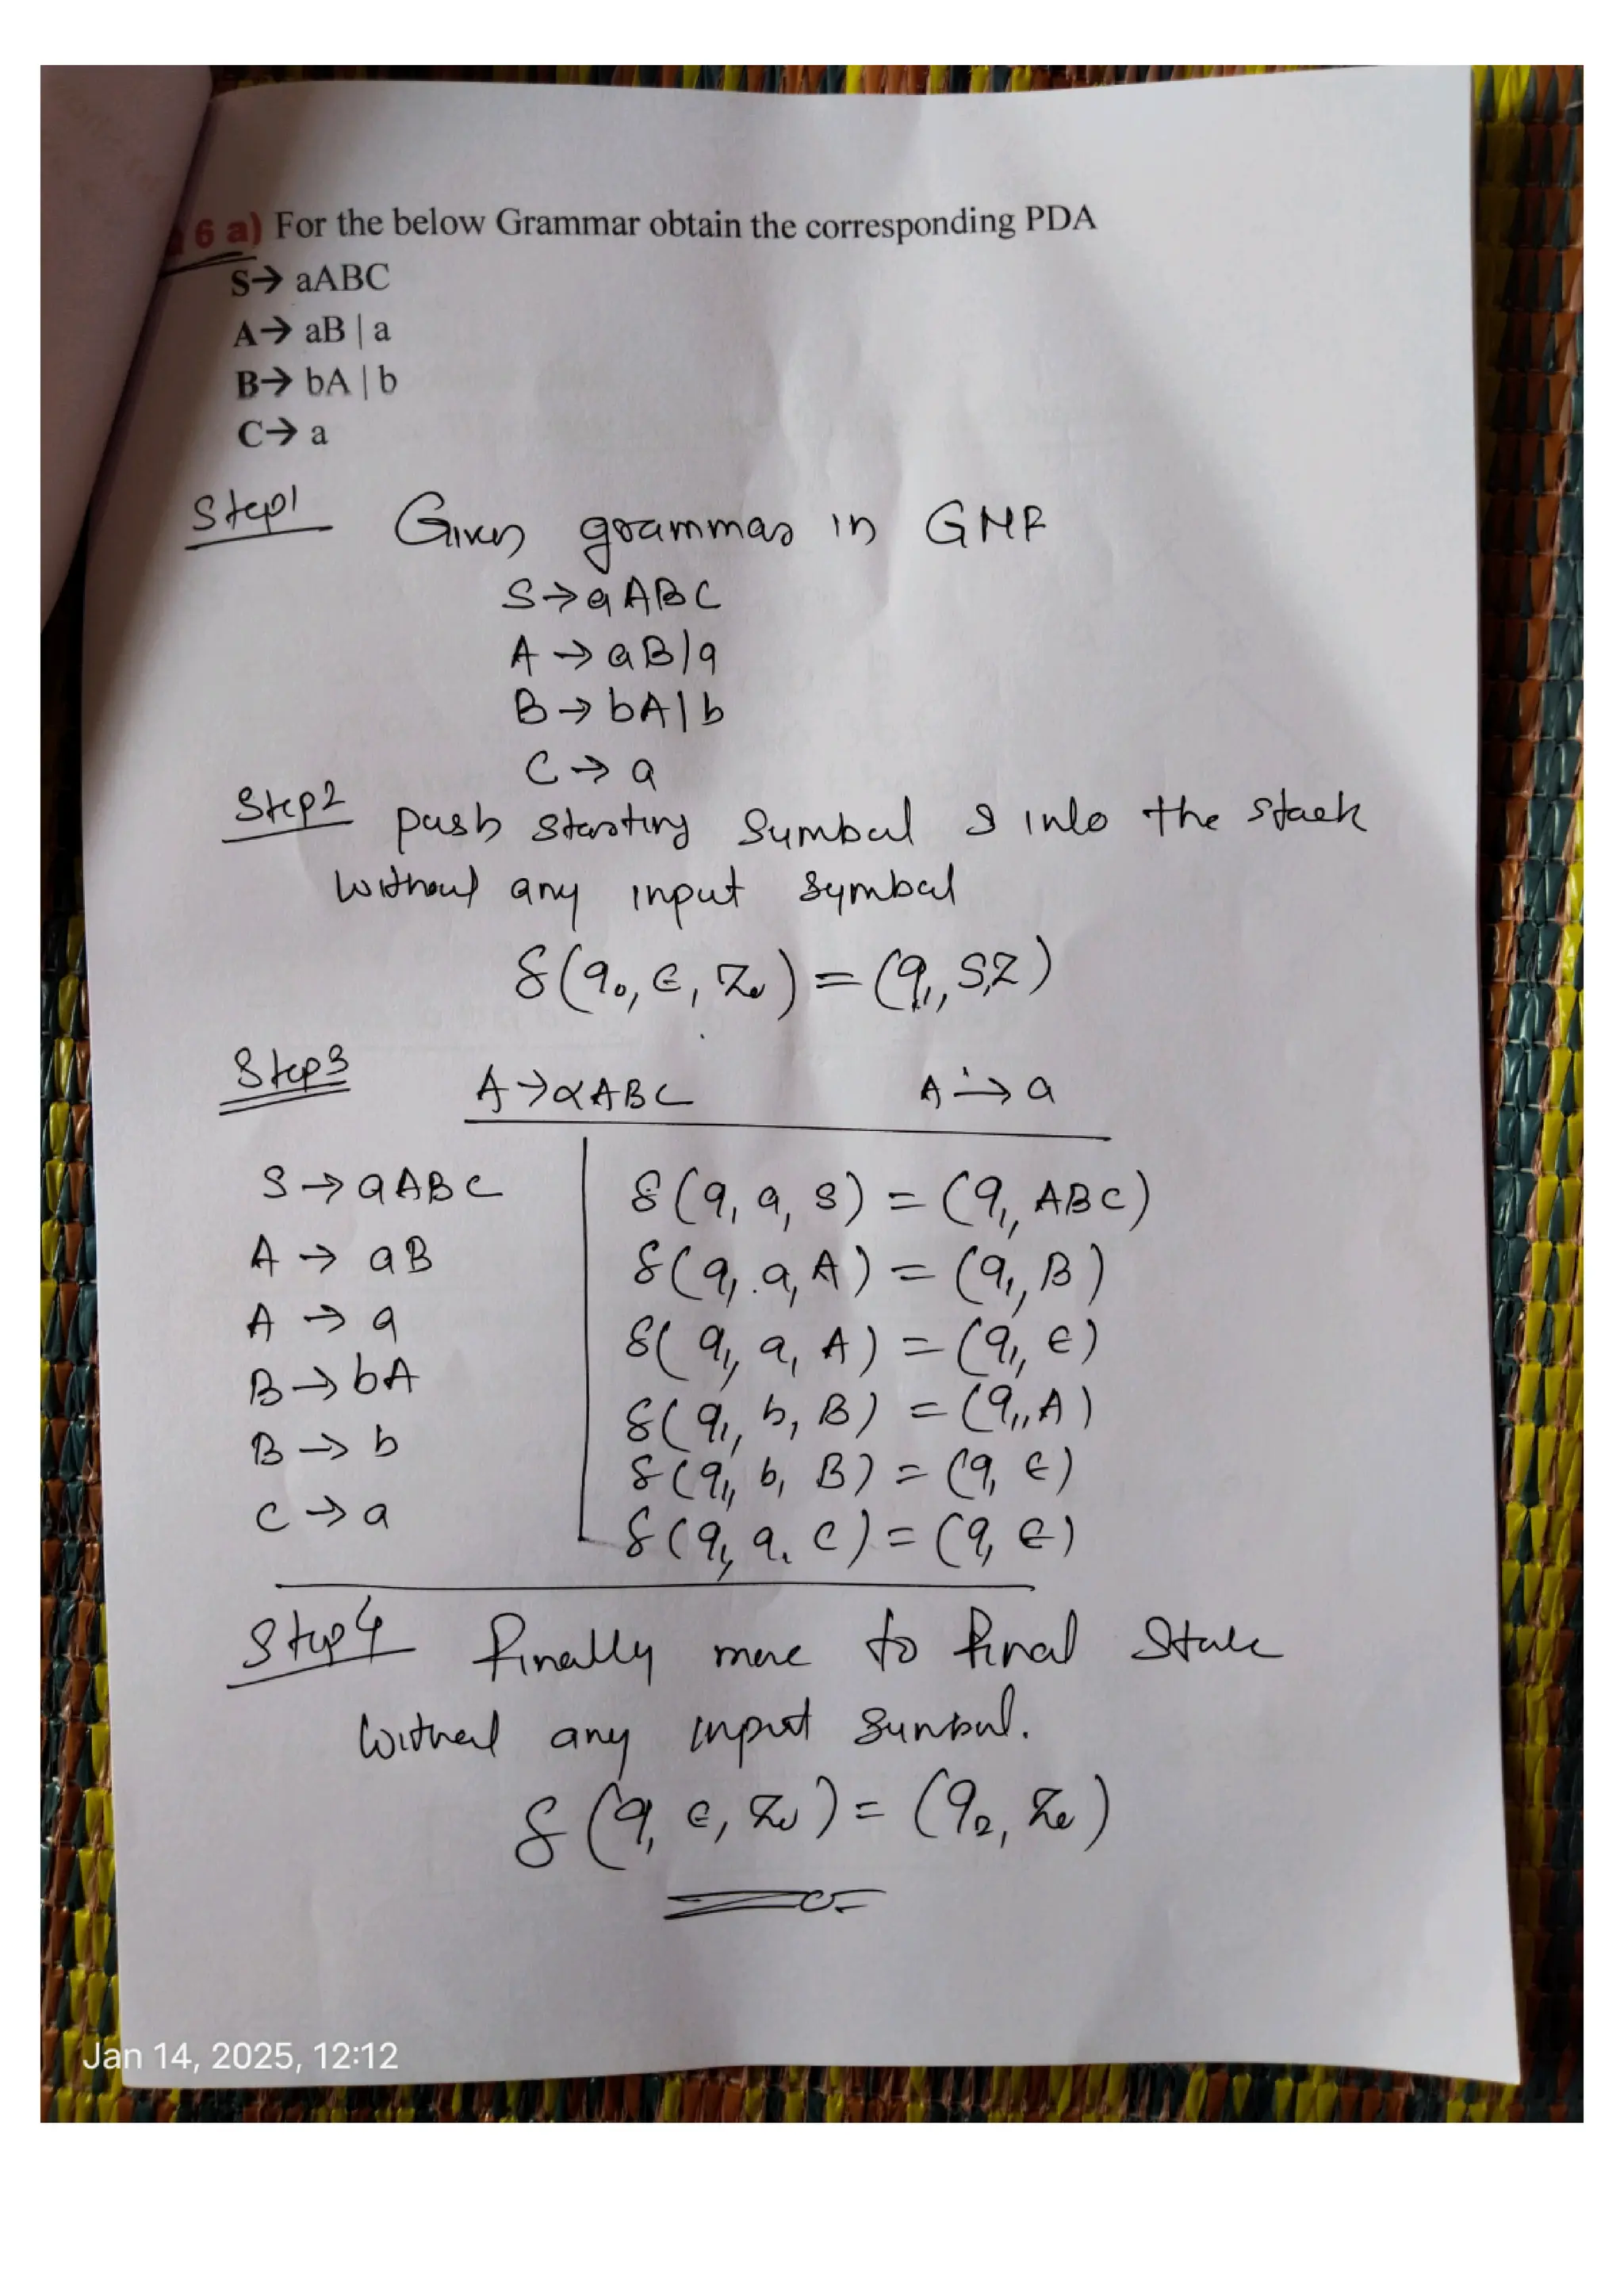 6 a) For the below Grammar obtain the corresponding PDA
S→ aABC
A→ aB | a
B→ bA | b
C→ a
Step1 Given grammar in GNF
S→aABC
A→aB|a
B→bA|b
C→a
Step2 push starting Sumbul S into the stack
without any input symbol
δ(q0, ε, Z0) = (q1, SZ)
Step3 A→αABC A→a
S→aABC δ(q1 a, S) = (q1, ABC)
A→aB δ(q1, a, A) = (q1, B)
A→a δ(q1, a, A) = (q1, ε)
B→bA δ(q1, b, B) = (q1, A)
B→b δ(q1, b, B) = (q1 ε)
C→a δ(q1, a, C) = (q1 ε)
Step4 Finally move to final State
without any input
δ(q1 ε, Z0) = (q2, Z0)
Jan 14, 2025, 12:12